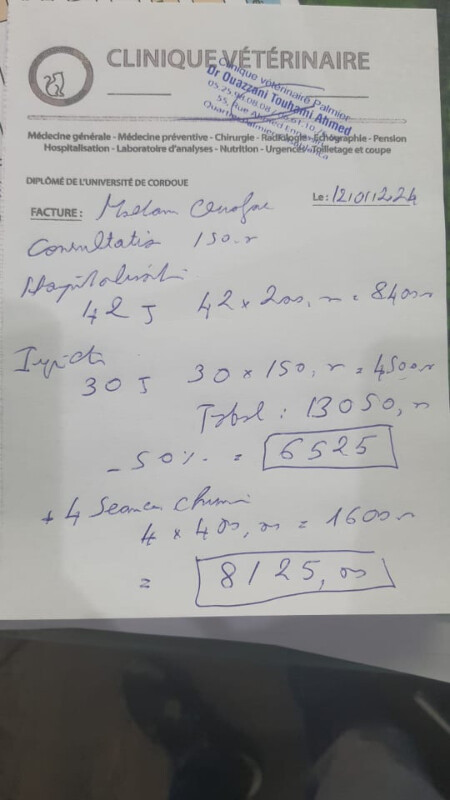 CLINIQUE VÉTÉRINAIRE
Clinique vétérinaire Palmier
Dr Ouazzani Touhami Ahmed
05.25.98.08.08
55, Rue Ahmed
Quartier Palmier
Médecine générale - Médecine préventive - Chirurgie - Radiologie - Échographie - Pension
Hospitalisation - Laboratoire d'analyses - Nutrition - Urgences - Toilettage et coupe
DIPLÔMÉ DE L'UNIVERSITÉ DE CORDOUE
Le : 12/01/2024
FACTURE : Madam
Consultatio 150.00
Hospitalisatio
42 J 42 x 200,00 = 8400,00
Injecti
30 J 30 x 150,00 = 4500,00
Total : 13050,00
- 50% = 6525
+ 4 Seances chimi
4 x 400,00 = 1600,00
= 8125,00